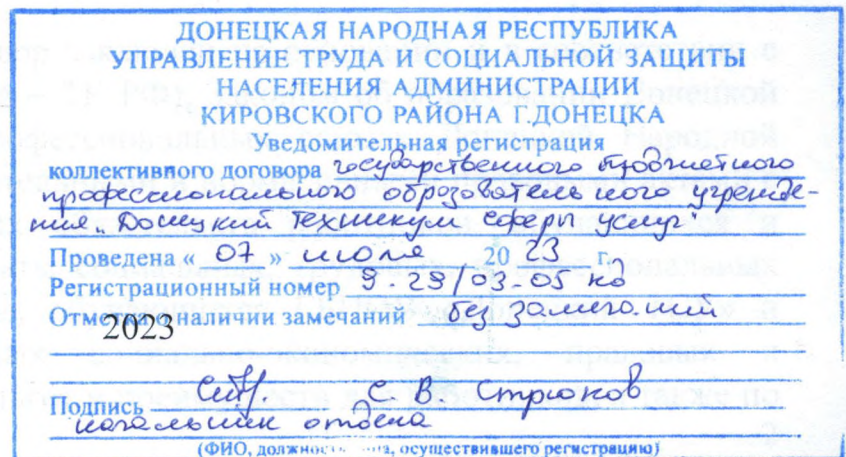 ДОНЕЦКАЯ НАРОДНАЯ РЕСПУБЛИКА
УПРАВЛЕНИЕ ТРУДА И СОЦИАЛЬНОЙ ЗАЩИТЫ
НАСЕЛЕНИЯ АДМИНИСТРАЦИИ
КИРОВСКОГО РАЙОНА Г.ДОНЕЦКА
Уведомительная регистрация
коллективного договора государственного бюджетного
профессионального образовательного учрежде-
ния „Донецкий техникум сферы услуг"
Проведена « 07 » июля 20 23 г.
Регистрационный номер 9-29/03-05 кд
Отметка о наличии замечаний без замечаний
2023
Подпись С. В. Стрюков
начальник отдела
(ФИО, должность лица, осуществившего регистрацию)